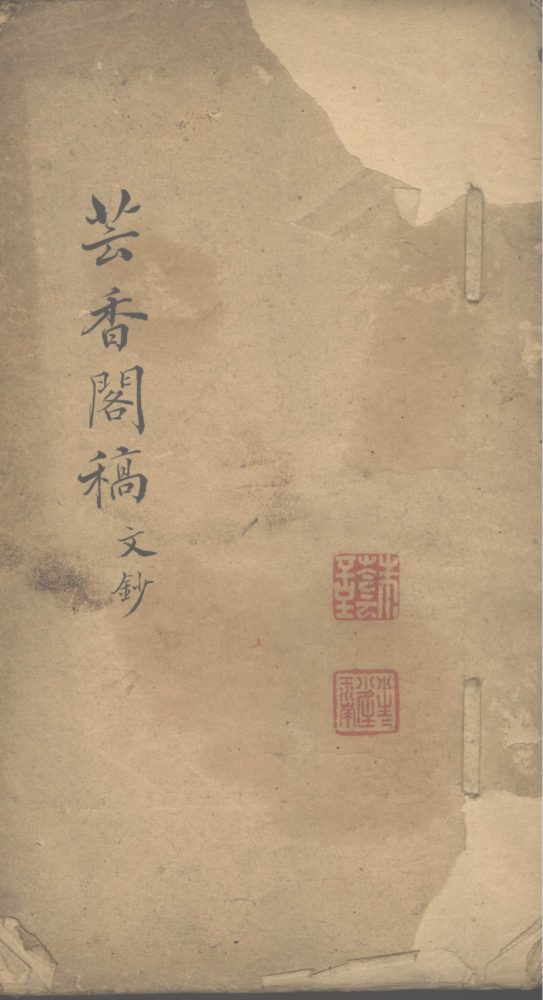 芸香閣稿 文鈔